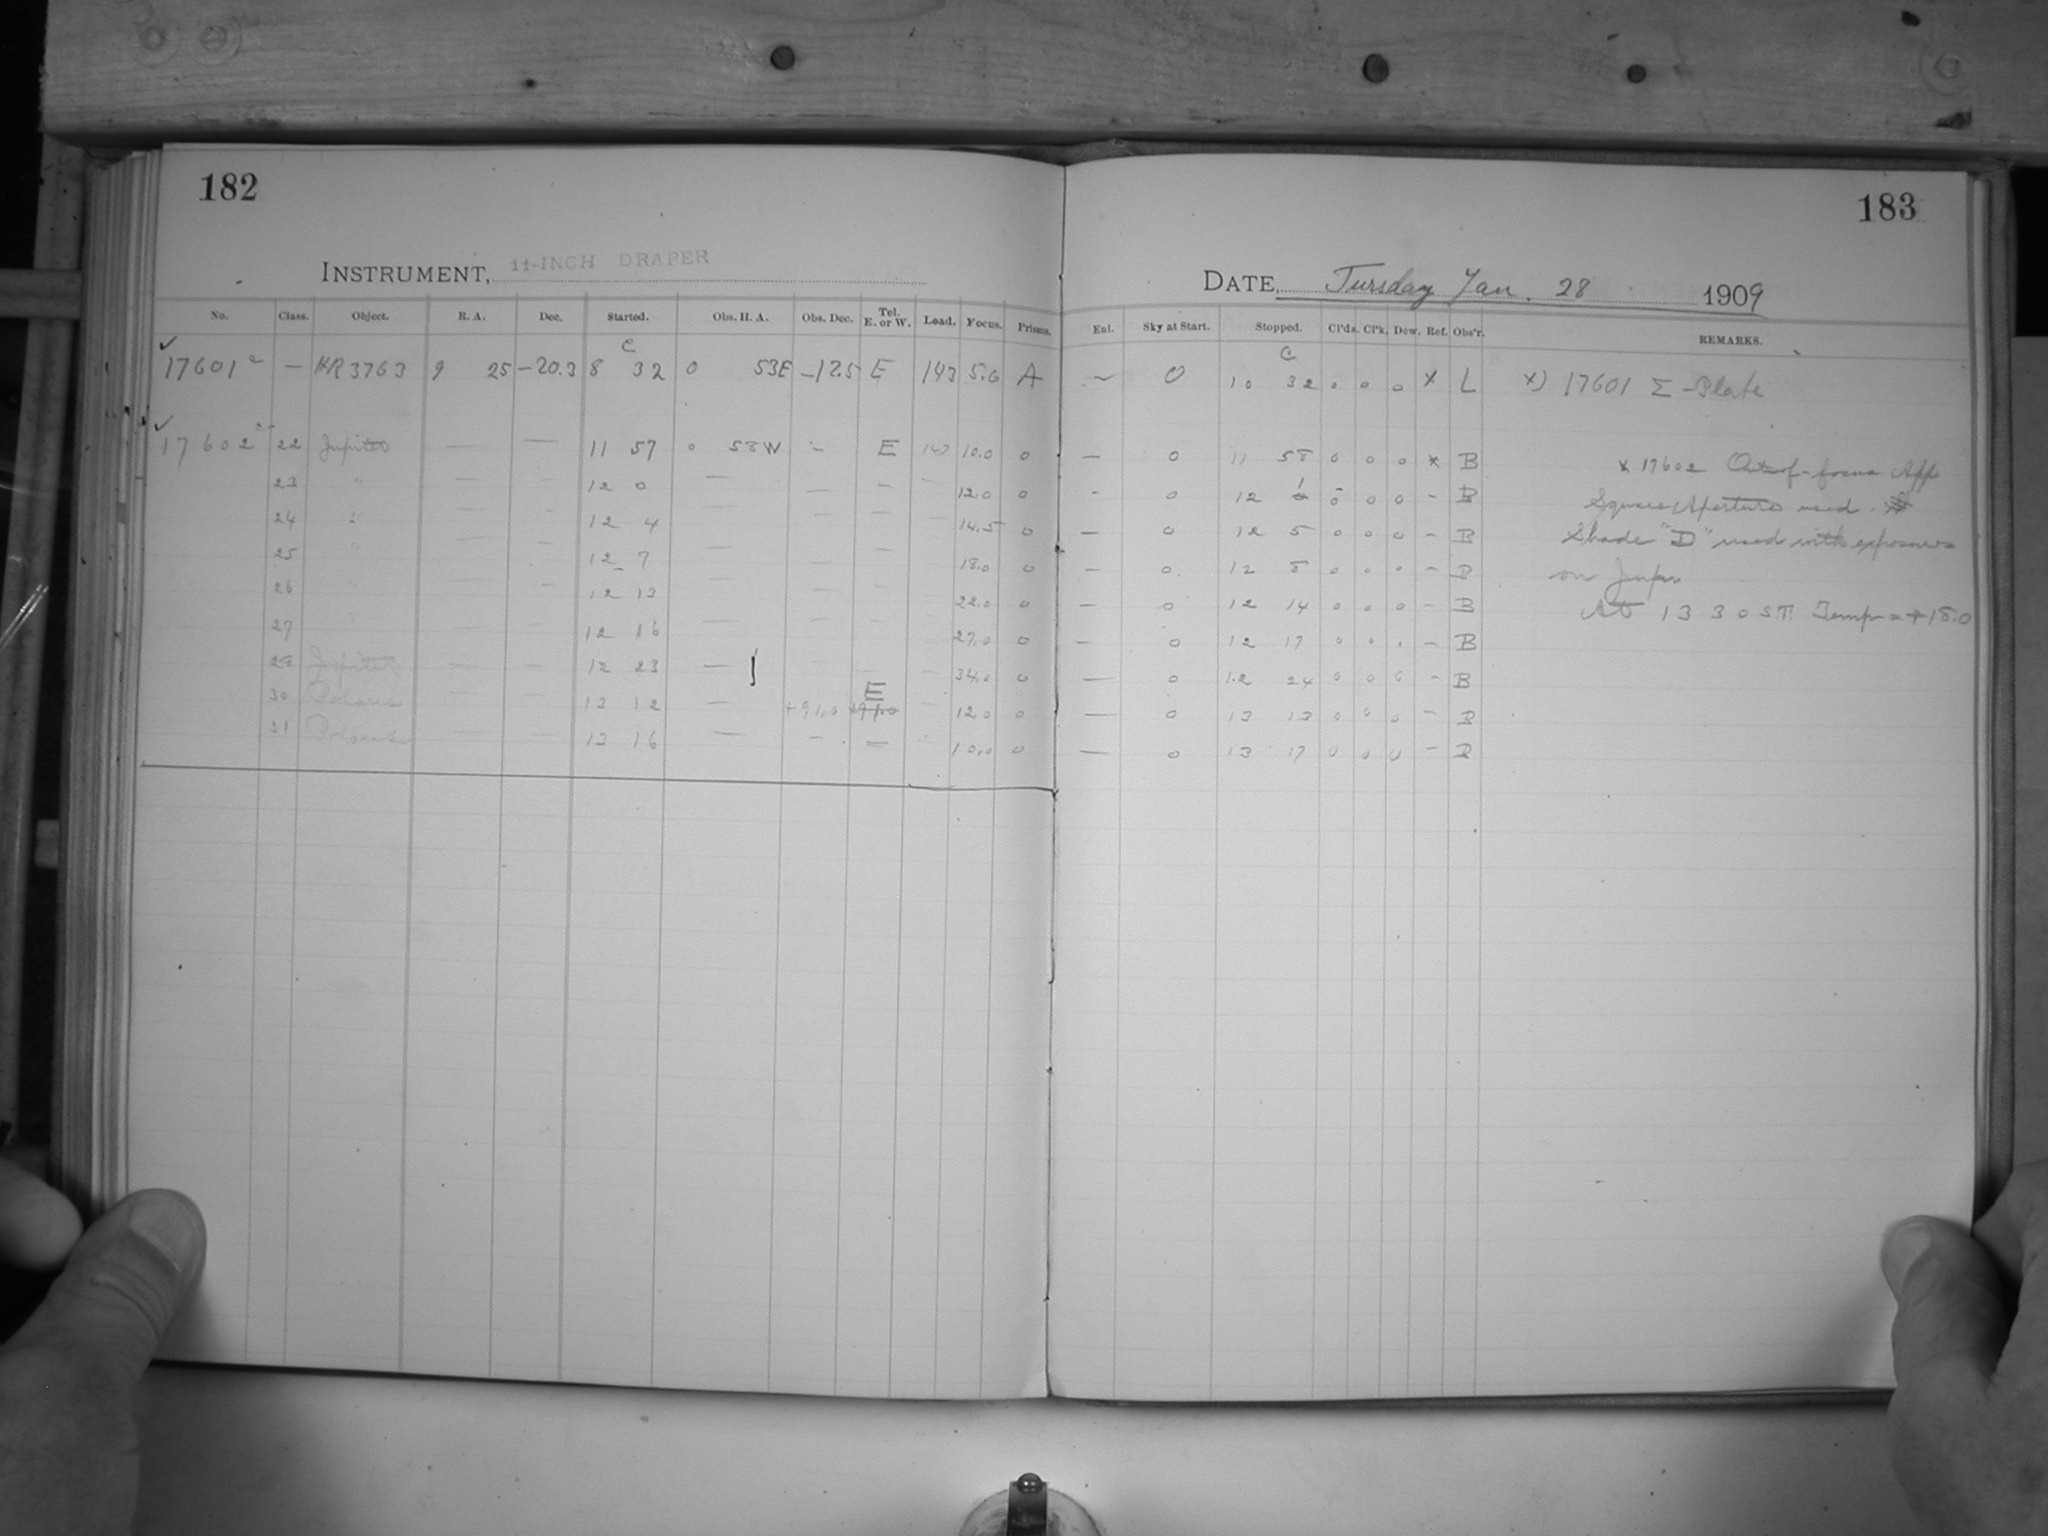 182
183
INSTRUMENT, 11-INCH DRAPER
DATE, Tursday Jan. 28 1909
No. Class. Object. R. A. Dec. Started. Obs. H. A. Obs. Dec. Tel. E. or W. Load. Focus. Prisms. Enl. Sky at Start. Stopped. Cl'ds. Cl'k. Dew. Ref. Obs'r. REMARKS.
✓ 17601 c — HR 3763 9 25 -20.3 c 8 32 0 53E -125 E 143 5.6 A — 0 c 10 32 0 0 0 x L x) 17601 Σ-Plate
✓ 17602 c 22 Jupiter — — 11 57 0 58W — E 147 10.0 0 — 0 11 58 0 0 0 * B * 17602 Out of-focus App
23 " — — 12 0 — — — — 12.0 0 - 0 12 1 0 0 0 - B Square Aperture used.
24 " — — 12 4 — — — — 14.5 0 — 0 12 5 0 0 0 - B Shade "D" used with exposures
25 " — — 12 7 — — — — 18.0 0 — 0 12 8 0 0 0 - B on Jup.
26 " — — 12 13 — — — — 22.0 0 — 0 12 14 0 0 0 - B At 13 30 ST. Temp = +18.0
27 " — — 12 16 — — — — 27.0 0 — 0 12 17 0 0 0 - B
28 Jupiter — — 12 23 — — — 34.0 0 — 0 12 24 0 0 0 - B
30 Polaris — — 13 12 — +91.0 E +91.0 — 12.0 0 — 0 13 13 0 0 0 - B
31 Polaris — — 13 16 — — — — 10.0 0 — 0 13 17 0 0 0 - B